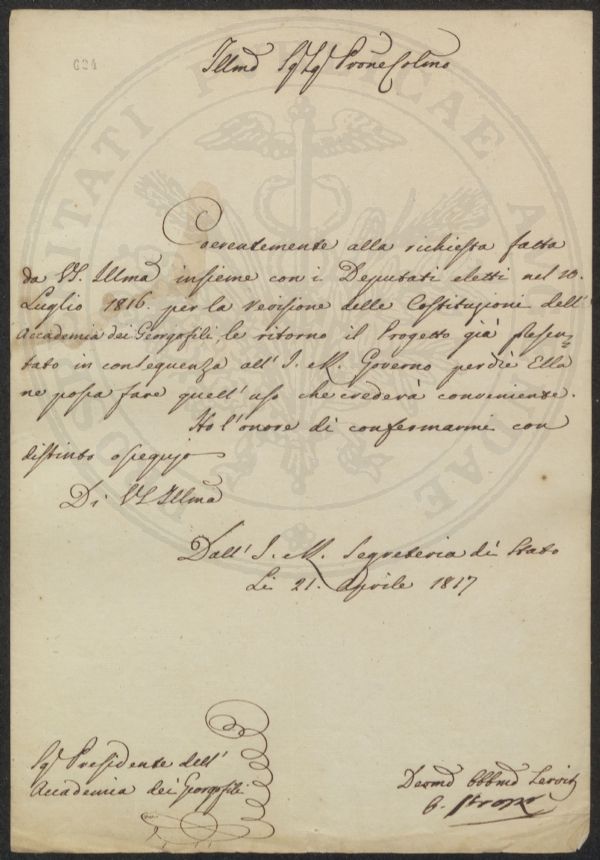 624
Illmo Sig. Sig. Prone Colmo
Coerentemente alla richiesta fatta
da VS. Illma insieme con i Deputati eletti nel 10.
Luglio 1816. per la revisione delle Costituzioni dell'
Accademia dei Georgofili, le ritorno il Progetto già Presen-
tato in conseguenza all' I. e R. Governo perchè Ella
ne possa fare quell' uso che crederà conveniente.
Ho l'onore di confermarmi con
distinto ossequio
Di VS Illma
Dall' I. e R. Segreteria di Stato
Li 21. Aprile 1817
Sig. Presidente dell'
Accademia dei Georgofili
Devmo Obbmo Servit